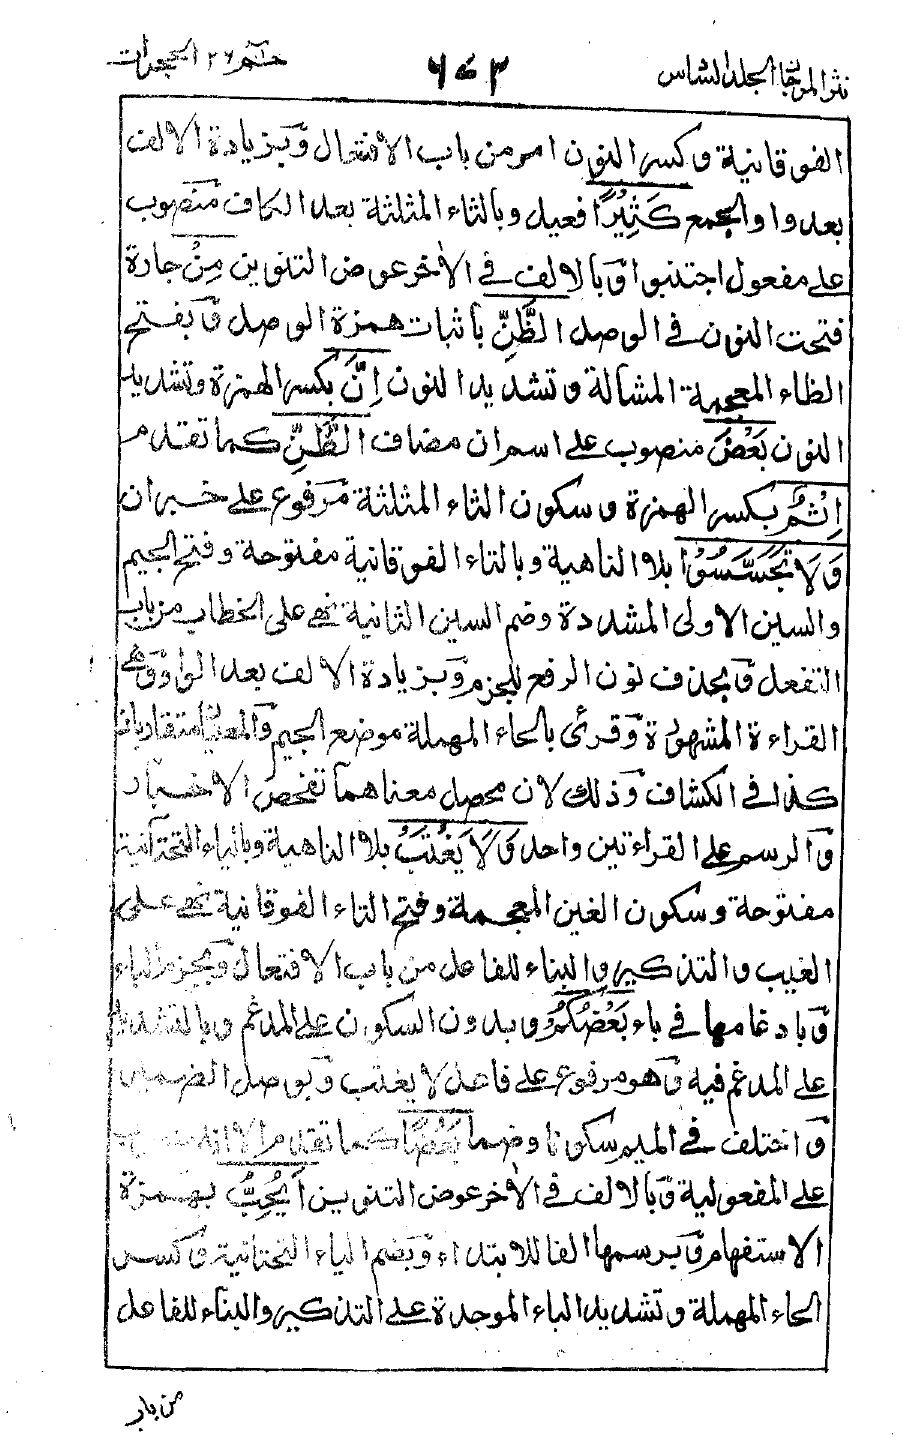 نثر المرجان الجلد السادس ٦٧٣ حم ٢٦ الحجرات
الفوقانية وكسر النون امر من باب الافتعال وبزيادة الالف
بعد واو الجمع كَثِيْرًا فعيل وبالثاء المثلثة بعد الكاف منصوب
على مفعول اجتنبوا وبالالف في الاخر عوض التنوين مِنَ جارة
فتحت النون في الوصل الظَّنِّ باثبات همزة الوصل وبفتح
الظاء المعجمة المشالة وتشديد النون اِنَّ بكسر الهمزة وتشديد
النون بَعْضَ منصوب على اسم ان مضاف الظَّنِّ كما تقدم
اِثْمٌ بكسر الهمزة وسكون الثاء المثلثة مرفوع على خبر ان
وَلَا تَجَسَّسُوْا بلا الناهية وبالتاء الفوقانية مفتوحة وفتح الجيم
والسين الاولى المشددة وضم السين الثانية نهي على الخطاب من باب
التفعل وبحذف نون الرفع للجزم وبزيادة الالف بعد الواو وهي
القراءة المشهورة وقرئ بالحاء المهملة موضع الجيم والمعنيان متقاربان
كذا في الكشاف وذلك لان محصل معناهما تفحص الاخبار
والرسم على القراءتين واحد وَلَا يَغْتَبْ بلا الناهية وبالياء التحتانية
مفتوحة وسكون الغين المعجمة وفتح التاء الفوقانية نهي على
الغيب والتذكير والبناء للفاعل من باب الافتعال وبجزم الباء
وبادغامها في باء بَعْضُكُمْ وبدون السكون على المدغم وبالتشديد
على المدغم فيه وهو مرفوع على فاعل لا يغتب وبوصل الضمير
واختلف في الميم سكونا وضما بَعْضًا كما تقدم الا انه منصوب
على المفعولية وبالالف في الاخر عوض التنوين اَيُحِبُّ بهمزة
الاستفهام وبرسمها الفا للابتداء وبضم الياء التحتانية وكسر
الحاء المهملة وتشديد الباء الموحدة على التذكير والبناء للفاعل
من باب